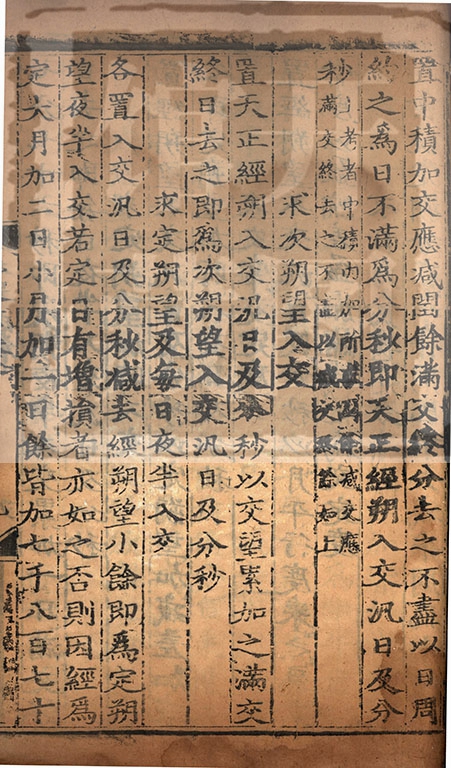 置中積加交應减閏餘滿交終分去之不盡以日周
終之爲日不滿爲分秒即天正經朔入交汎日及分
秒上考者中積內加所求閏餘减交應
滿交終去之不盡以减交終餘如上
求次朔望入交
置天正經朔入交汎日及分秒以交望累加之滿交
終日去之即爲次朔望入交汎日及分秒
求定朔望及每日夜半入交
各置入交汎日及分秒减去經朔望小餘即爲定朔
望夜半入交若定日有增損者亦如之否則因經爲
定大月加二日小月加一日餘皆加七千八百七十